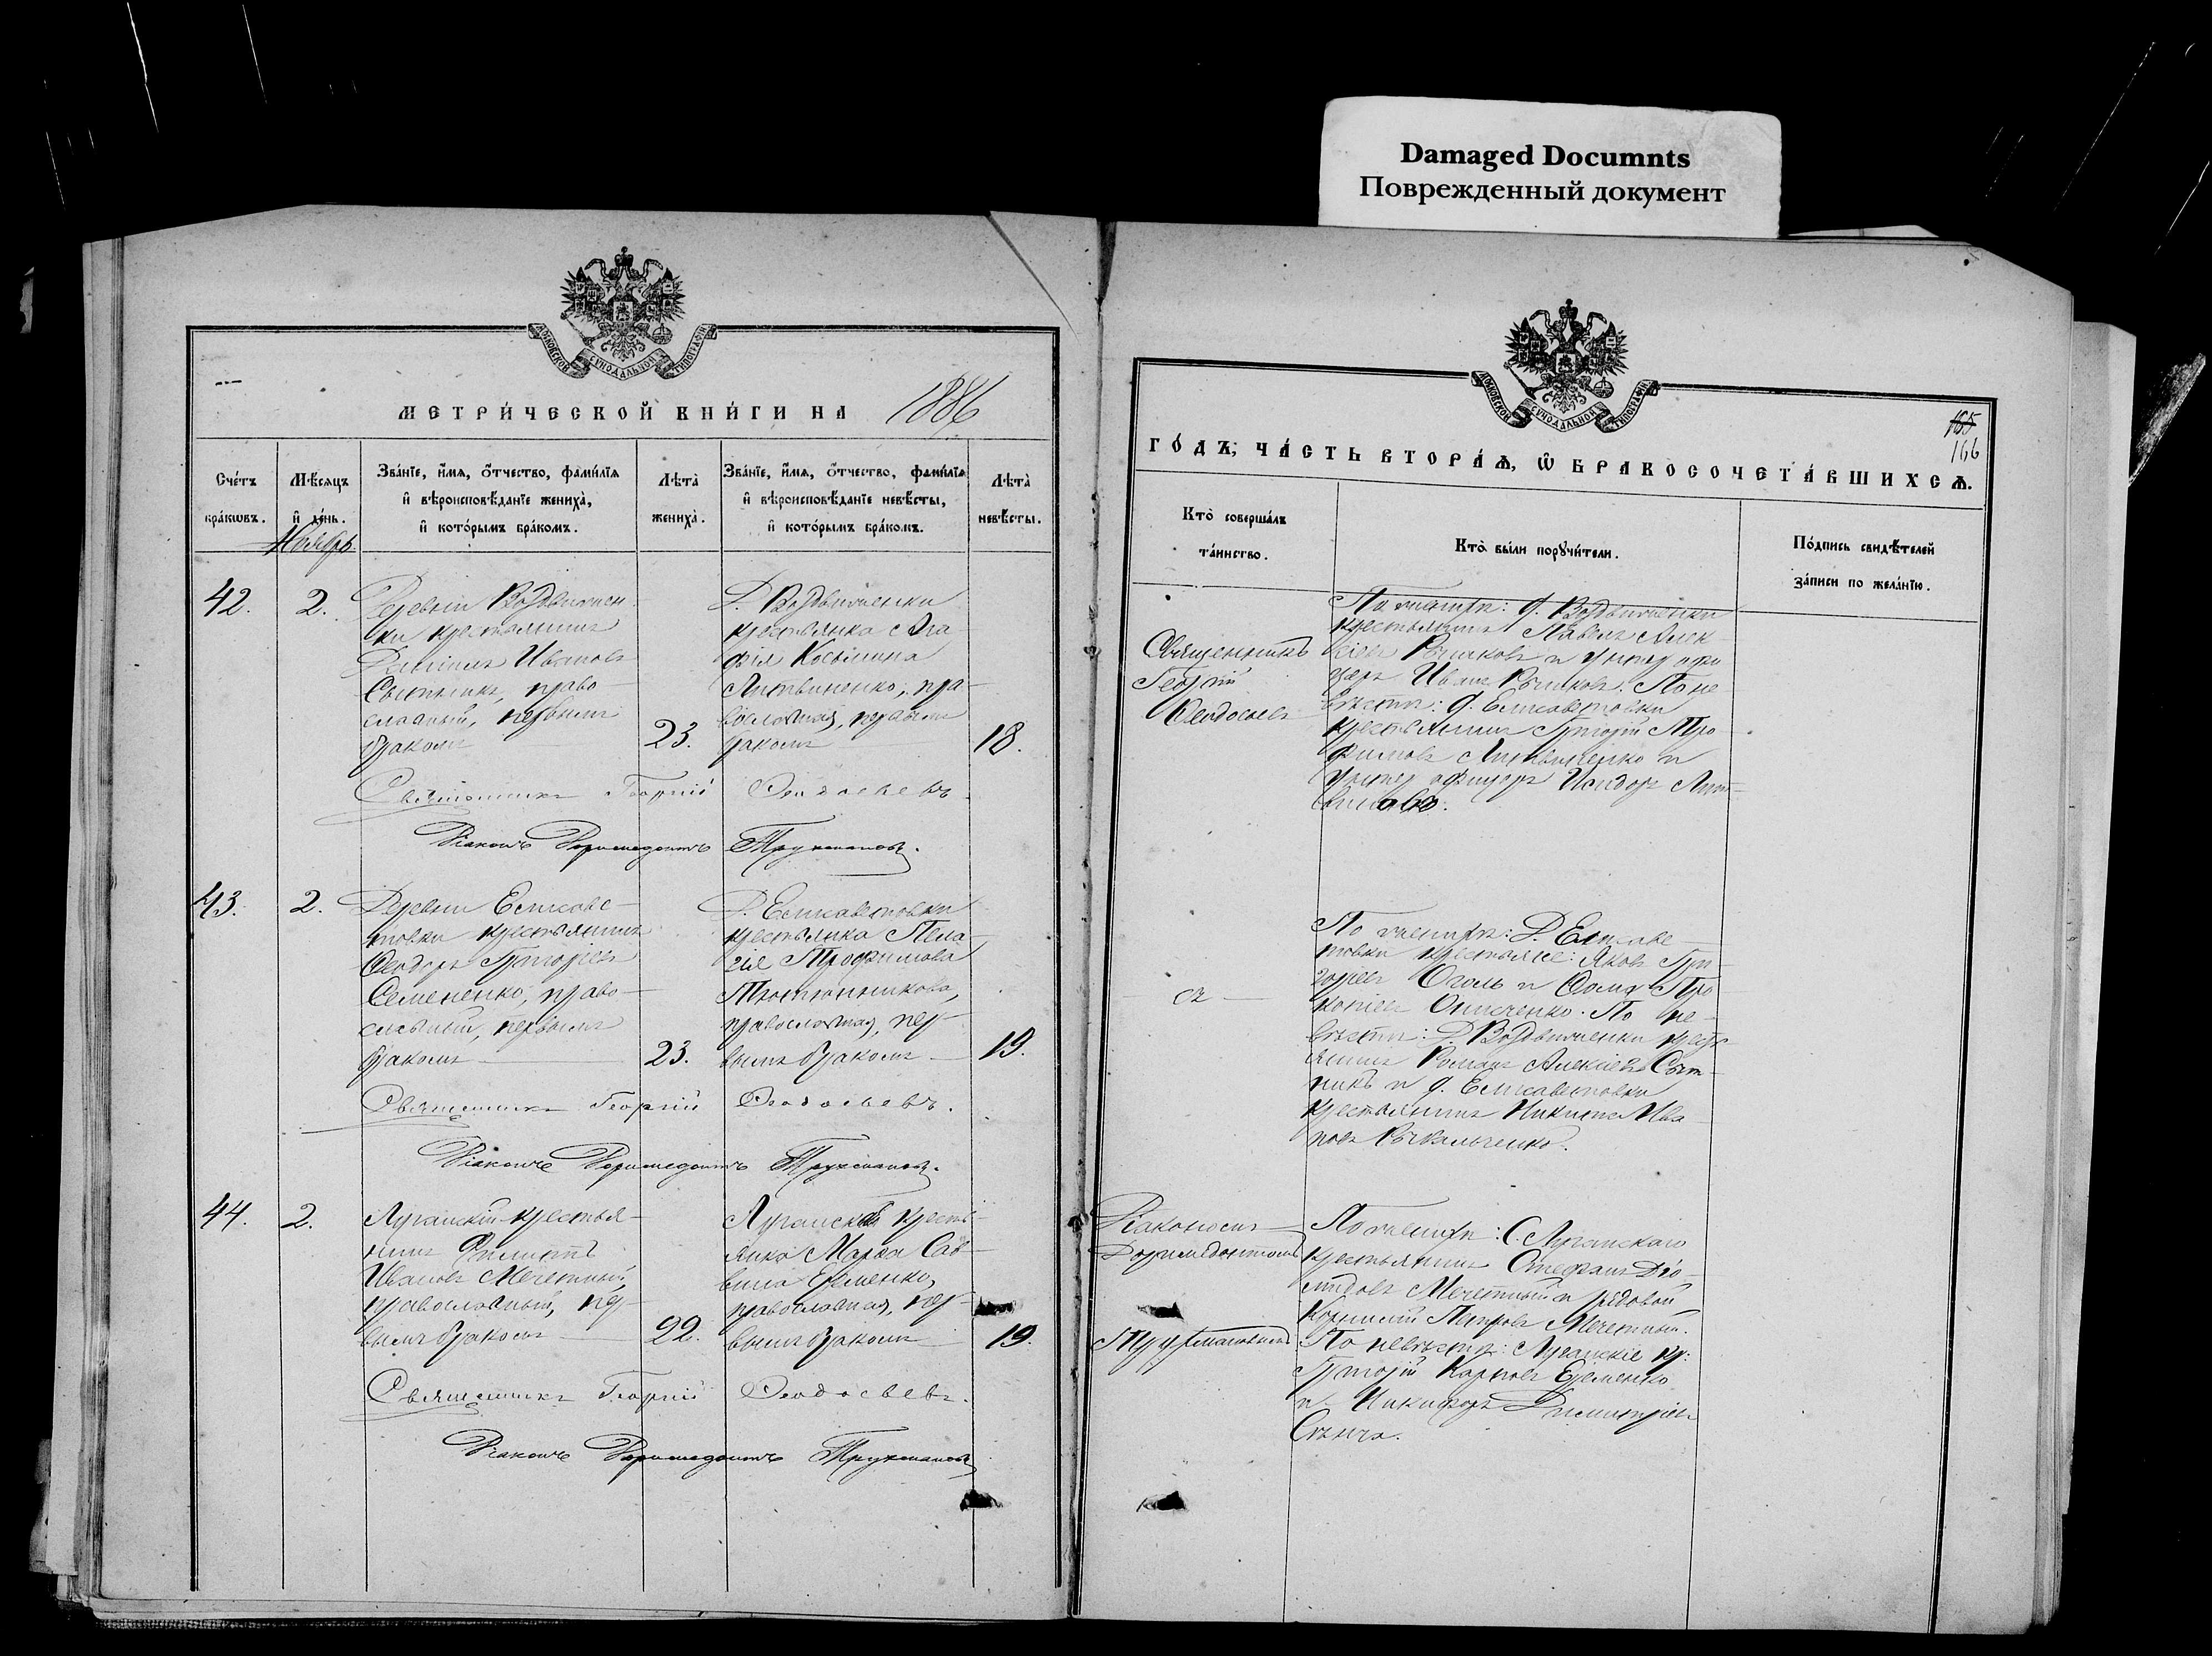 Damaged Documnts
Поврежденный документ
МОСКОВСКОЙ СѴНОДАЛЬНОЙ ТИПОГРАФІИ
МЕТРИ́ЧЕСКОЙ КНИ́ГИ НА 1886
Сче́тъ бра́кѡвъ.
Мѣ́сяцъ и҆ де́нь.
Ноябрь.
Зва́нїе, и҆́мѧ, ѻ҆́тчество, фами́лїѧ
и҆ вѣроисповѣ́данїе жениха̀,
и҆ кото́рымъ бра́комъ.
Лѣта̀ жениха̀.
Зва́нїе, и҆́мѧ, ѻ҆́тчество, фами́лїѧ
и҆ вѣроисповѣ́данїе невѣ́сты,
и҆ кото́рымъ бра́комъ.
Лѣта̀ невѣ́сты.
42.
2.
Деревни Воздвижен-
ки крестьянинъ
Ивановъ
Сытникъ, право-
славный, первымъ
бракомъ
23.
Д. Воздвиженки
крестьянка Ага-
фія Косьмина
Литвиненко, пра-
вославная, первымъ
бракомъ
18.
Священникъ Георгій Ѳеодосьевъ
Діаконъ Доримедонтъ Трукмановъ.
43.
2.
Деревни Елисаве-
товки крестьянинъ
Ѳеодоръ Григорьевъ
Семененко, право-
славный, первымъ
бракомъ
23.
Д. Елисаветовки
крестьянка Пела-
гія Трофимова
православная, пер-
вымъ бракомъ
19.
Священникъ Георгій Ѳеодосьевъ.
Діаконъ Доримедонтъ Трукмановъ.
44.
2.
Луганскій крестья-
нинъ Филиппъ
Ивановъ Мечетный,
православный, пер-
вымъ бракомъ
22.
Луганская кресть-
янка Марѳа Сав-
вина Еременко,
православная, пер-
вымъ бракомъ
19.
Священникъ Георгій Ѳеодосьевъ.
Діаконъ Доримедонтъ Трукмановъ
МОСКОВСКОЙ СѴНОДАЛЬНОЙ ТИПОГРАФІИ
165
166
ГО́ДЪ, ЧА́СТЬ ВТОРА́Ѧ, Ѡ҆ БРАКОСОЧЕТА́ВШИХСѦ.
Кто̀ соверша́лъ
та́инство.
Кто̀ бы́ли порꙋчи́тели.
По́дпись свидѣ́телей
за́писи по жела́нїю.
Священникъ
Георгій
Ѳеодосьевъ
По женихѣ: д. Воздвиженки
крестьянинъ Павелъ Алек-
сіевъ и унтер офи-
церъ Иванъ По не-
вѣстѣ: д. Елисаветовки
крестьянинъ Григорій Тро-
фимовъ Литвиненко и
унтер офицеръ Исидоръ Лит-
виновъ.
По женихѣ: Д. Елисаве-
товки крестьяне: Яковъ Гри-
горіевъ и Ѳома Про-
копіевъ По не-
вѣстѣ: Д. Воздвиженки крест-
янинъ Романъ Алексіевъ Сыт-
никъ и д. Елисаветовки
крестьянинъ Никита Ива-
новъ
Діакономъ
Доримедонтомъ
По женихѣ: С. Луганскаго
крестьянинъ Стефанъ Діо-
мидовъ Мечетный и рядовой
Корнилій Петровъ Мечетный.
По невѣстѣ: Луганскіе кр:
Григорій Карповъ Еременко
и Никифоръ Димитріевъ